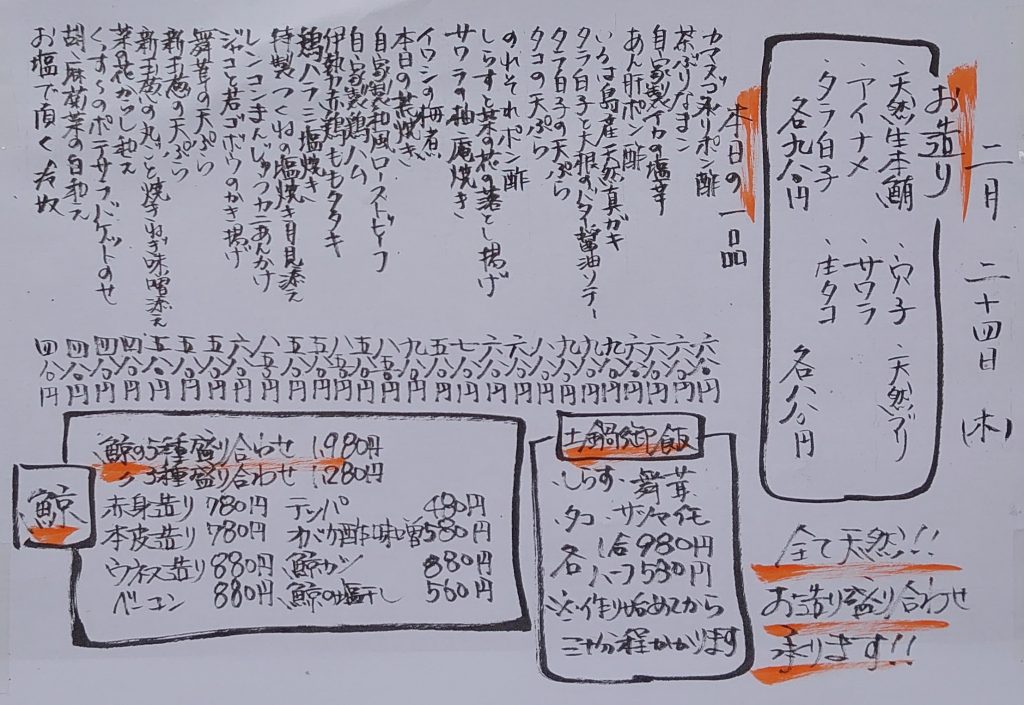 二月二十四日(木)
お造り
・天然生本鮪 ・穴子 ・天然ブリ
・アイナメ ・サワラ
・タラ白子 ・生タコ
各九八〇円
本日の一品
カマス 炙りポン酢 六八〇円
茶ぶりなまこ 六八〇円
自家製イカの塩辛 六八〇円
あん肝ポン酢 六八〇円
いろは島産天然真ガキ 九八〇円
タラ白子と大根のバタ醤油ソテー 九八〇円
タラ白子の天ぷら 九八〇円
タコの天ぷら 八八〇円
のれそれポン酢 六八〇円
しらすと菜の花の落とし揚げ 六八〇円
サワラの柚庵焼き 七八〇円
イワシの梅煮 五八〇円
本日の 焼き 九八〇円
自家製和風ローストビーフ
自家製鶏ハム
赤鶏ももタタキ
鶏ハラミ塩焼き
特製つくねの塩焼き月見添え
レンコンまんじゅうカニあんかけ
ジャコと若ゴボウのかき揚げ 六八〇円
舞茸の天ぷら 五八〇円
新玉ねぎの天ぷら 五八〇円
新玉ねぎの丸ごと焼きねぎ味噌添え 五八〇円
菜の花からし和え 四八〇円
ポテサラバケットのせ 四八〇円
胡麻菊菜の白和え 四八〇円
お塩で頂く冷奴 四八〇円
鯨
鯨の5種盛り合わせ 1,980円
〃 3種盛り合わせ 1,280円
赤身造り 780円 テッパ 480円
本皮造り 780円 オバケ酢味噌 580円
ウネス造り 880円 鯨カツ 880円
ベーコン 880円 鯨の塩干し 560円
土鍋御飯
・しらす ・舞茸
・タコ ・サツマイモ
各 1合 980円
各 ハーフ 530円
※作り始めてから
三十分程かかります
全て天然!!
お造り盛り合わせ
承ります!!